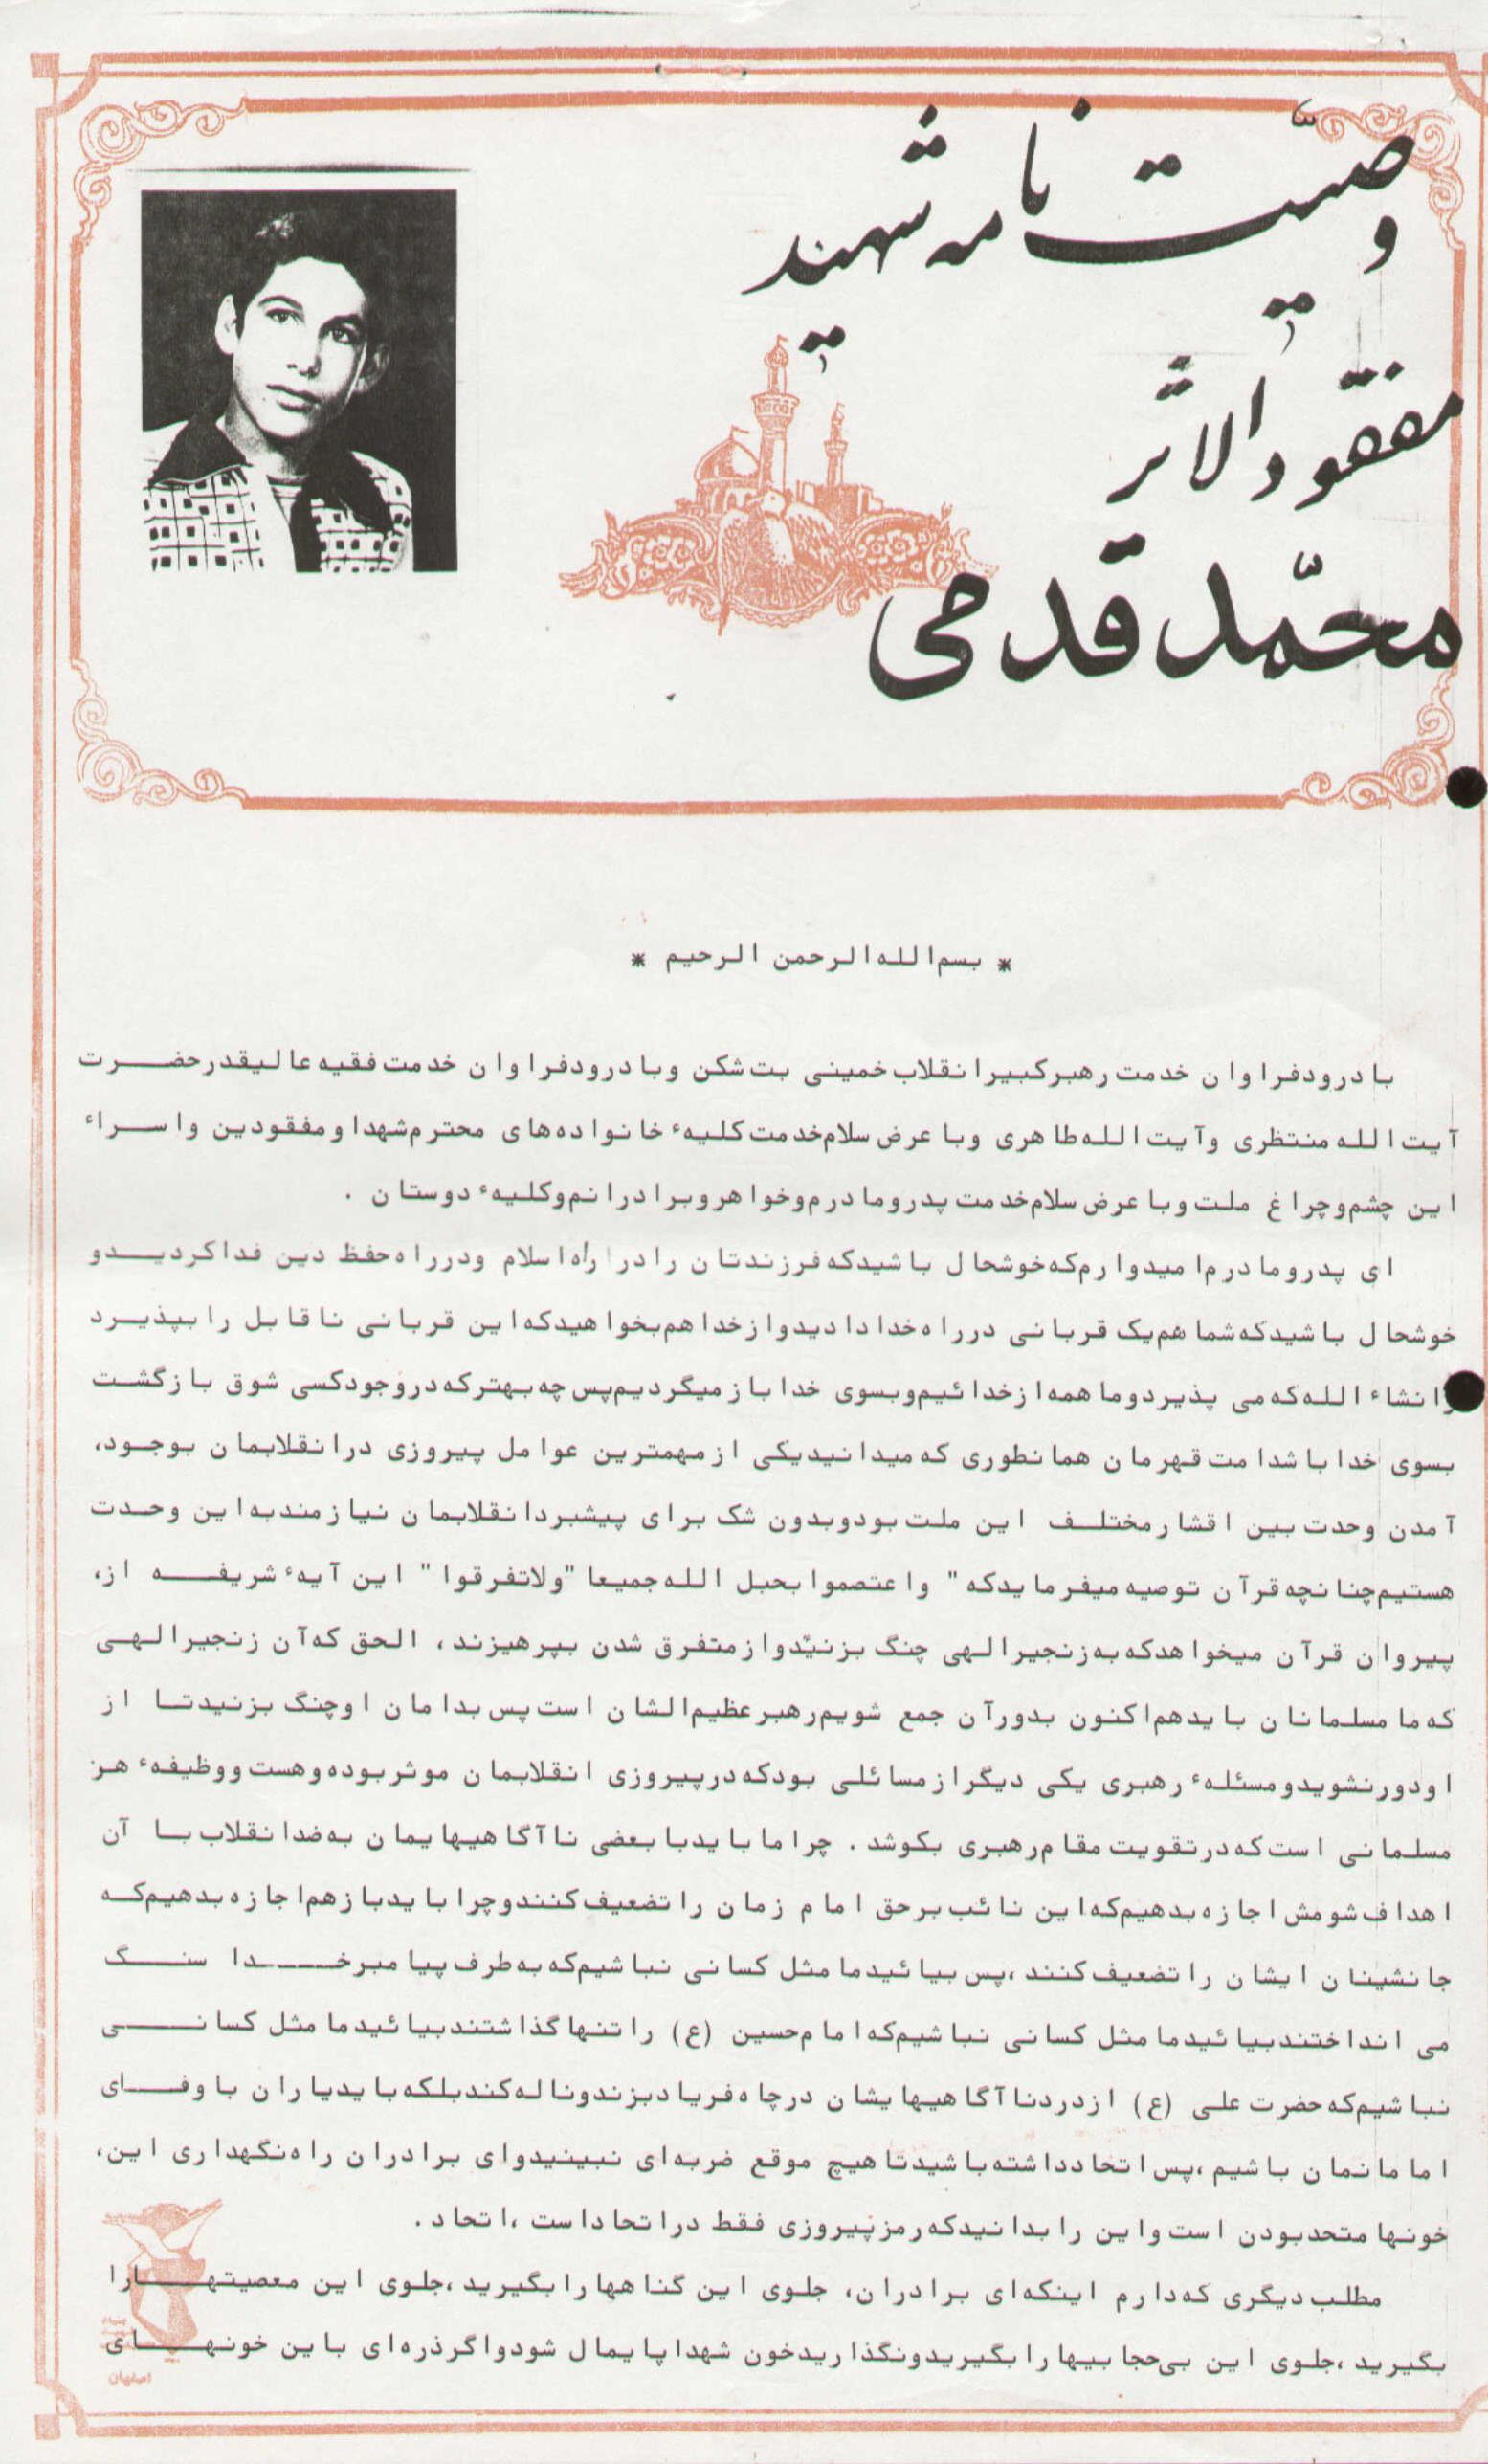 وصیّت نامه شهید
مفقودالاثر
محمّد قدحی
* بسم الله الرحمن الرحیم *
با درود فراوان خدمت رهبر کبیر انقلاب خمینی بت شکن و با درود فراوان خدمت فقیه عالیقدر حضرت
آیت الله منتظری وآیت الله طاهری وبا عرض سلام خدمت کلیهٔ خانواده های محترم شهدا و مفقودین واسراء
این چشم وچراغ ملت وبا عرض سلام خدمت پدر ومادرم وخواهر وبرادرانم وکلیهٔ دوستان .
ای پدر ومادرم امیدوارم که خوشحال باشید که فرزندتان را در راه اسلام ودر راه حفظ دین فدا کردید و
خوشحال باشید که شما هم یک قربانی در راه خدا دادید واز خدا هم بخواهید که این قربانی ناقابل را بپذیرد
وانشاء الله که می پذیرد وما همه از خدائیم وبسوی خدا باز میگردیم پس چه بهتر که در وجود کسی شوق بازگشت
بسوی خدا باشد امت قهرمان همانطوری که میدانید یکی از مهمترین عوامل پیروزی در انقلابمان بوجود،
آمدن وحدت بین اقشار مختلف این ملت بود وبدون شک برای پیشبرد انقلابمان نیازمند به این وحدت
هستیم چنانچه قرآن توصیه میفرماید که " واعتصموا بحبل الله جمیعا "ولاتفرقوا " این آیهٔ شریفه از،
پیروان قرآن میخواهد که به زنجیر الهی چنگ بزنیّد واز متفرق شدن بپرهیزند، الحق که آن زنجیر الهی
که ما مسلمانان باید هم اکنون بدور آن جمع شویم رهبر عظیم الشان است پس بدامان او چنگ بزنید تا از
او دور نشوید و مسئلهٔ رهبری یکی دیگر از مسائلی بود که در پیروزی انقلابمان موثر بوده وهست ووظیفهٔ هر
مسلمانی است که در تقویت مقام رهبری بکوشد . چرا ما باید با بعضی ناآگاهیهایمان به ضد انقلاب با آن
اهداف شومش اجازه بدهیم که این نائب برحق امام زمان را تضعیف کنند وچرا باید باز هم اجازه بدهیم که
جانشینان ایشان را تضعیف کنند ،پس بیائید ما مثل کسانی نباشیم که به طرف پیامبر خدا سنگ
می انداختند بیائید ما مثل کسانی نباشیم که امام حسین (ع) را تنها گذاشتند بیائید ما مثل کسانی
نباشیم که حضرت علی (ع) از درد ناآگاهیهایشان در چاه فریاد بزند وناله کند بلکه باید یاران با وفای
امامانمان باشیم ،پس اتحاد داشته باشید تا هیچ موقع ضربه ای نبینید وای برادران راه نگهداری این،
خونها متحد بودن است واین را بدانید که رمز پیروزی فقط در اتحاد است ،اتحاد.
مطلب دیگری که دارم اینکه ای برادران، جلوی این گناهها را بگیرید ،جلوی این معصیتها را
بگیرید ،جلوی این بی حجابیها را بگیرید ونگذارید خون شهدا پایمال شود واگر ذره ای باین خونهای
اصفهان